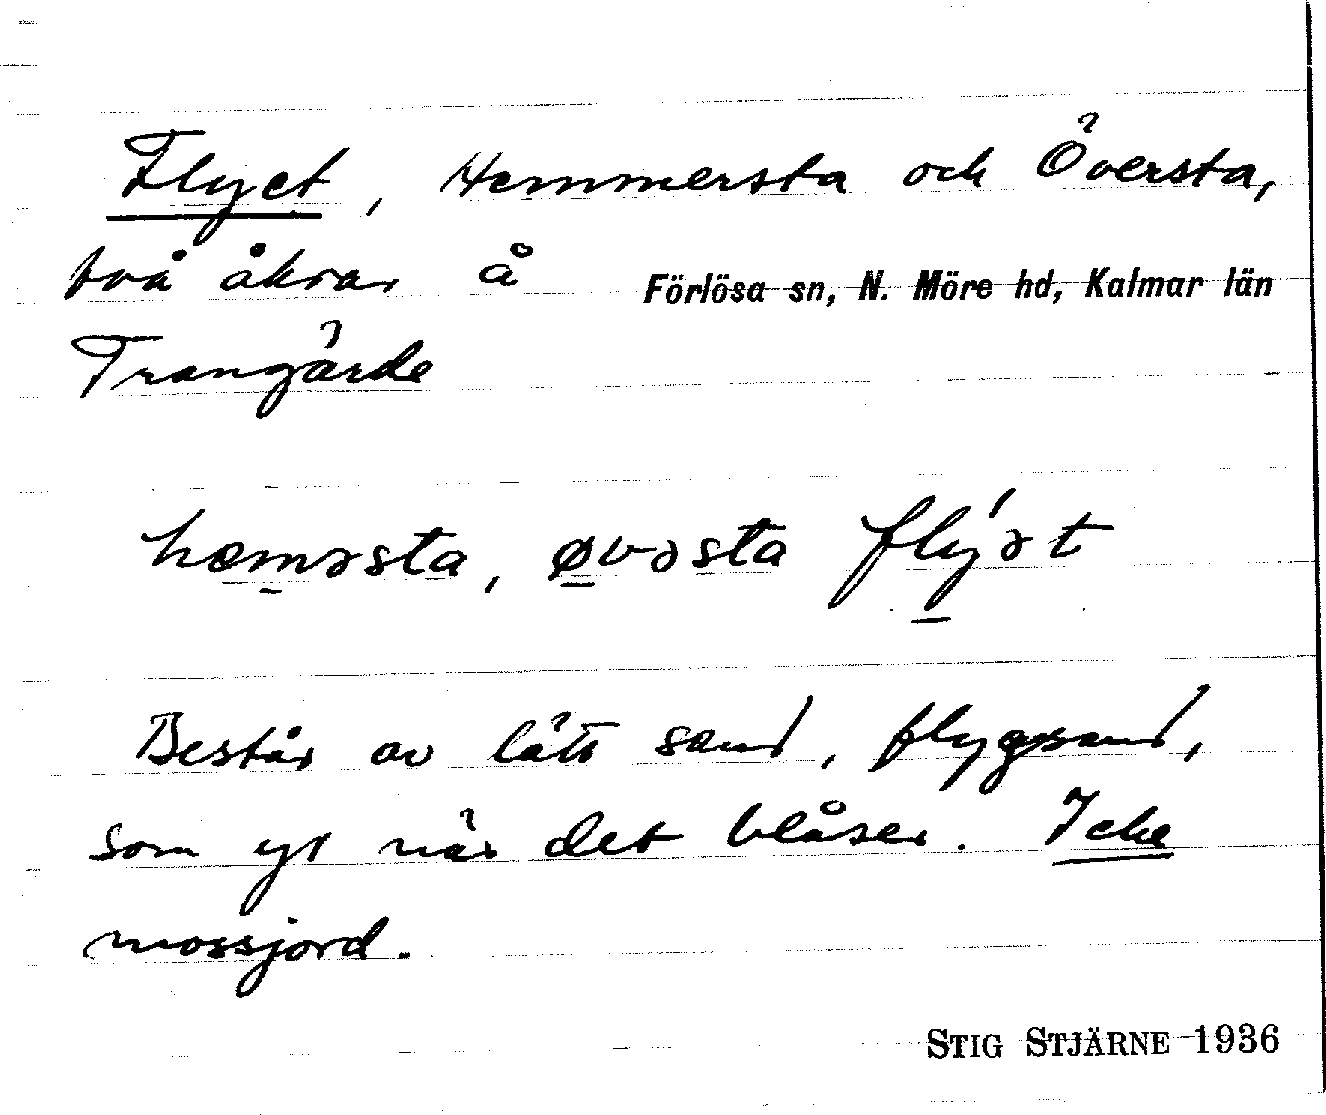 Flyet, Hemmersta och Översta,
två åkrar å Förlösa sn, N. Möre hd, Kalmar län
Trangärde
heməsta, øvəsta flýət
Består av lätt sand, flygsand,
som yr när det blåser. Icke
mossjord.
STIG STJÄRNE 1936